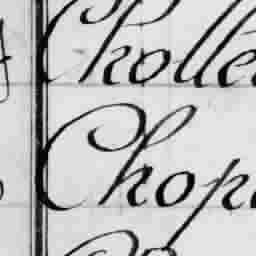 Cholle
Chop